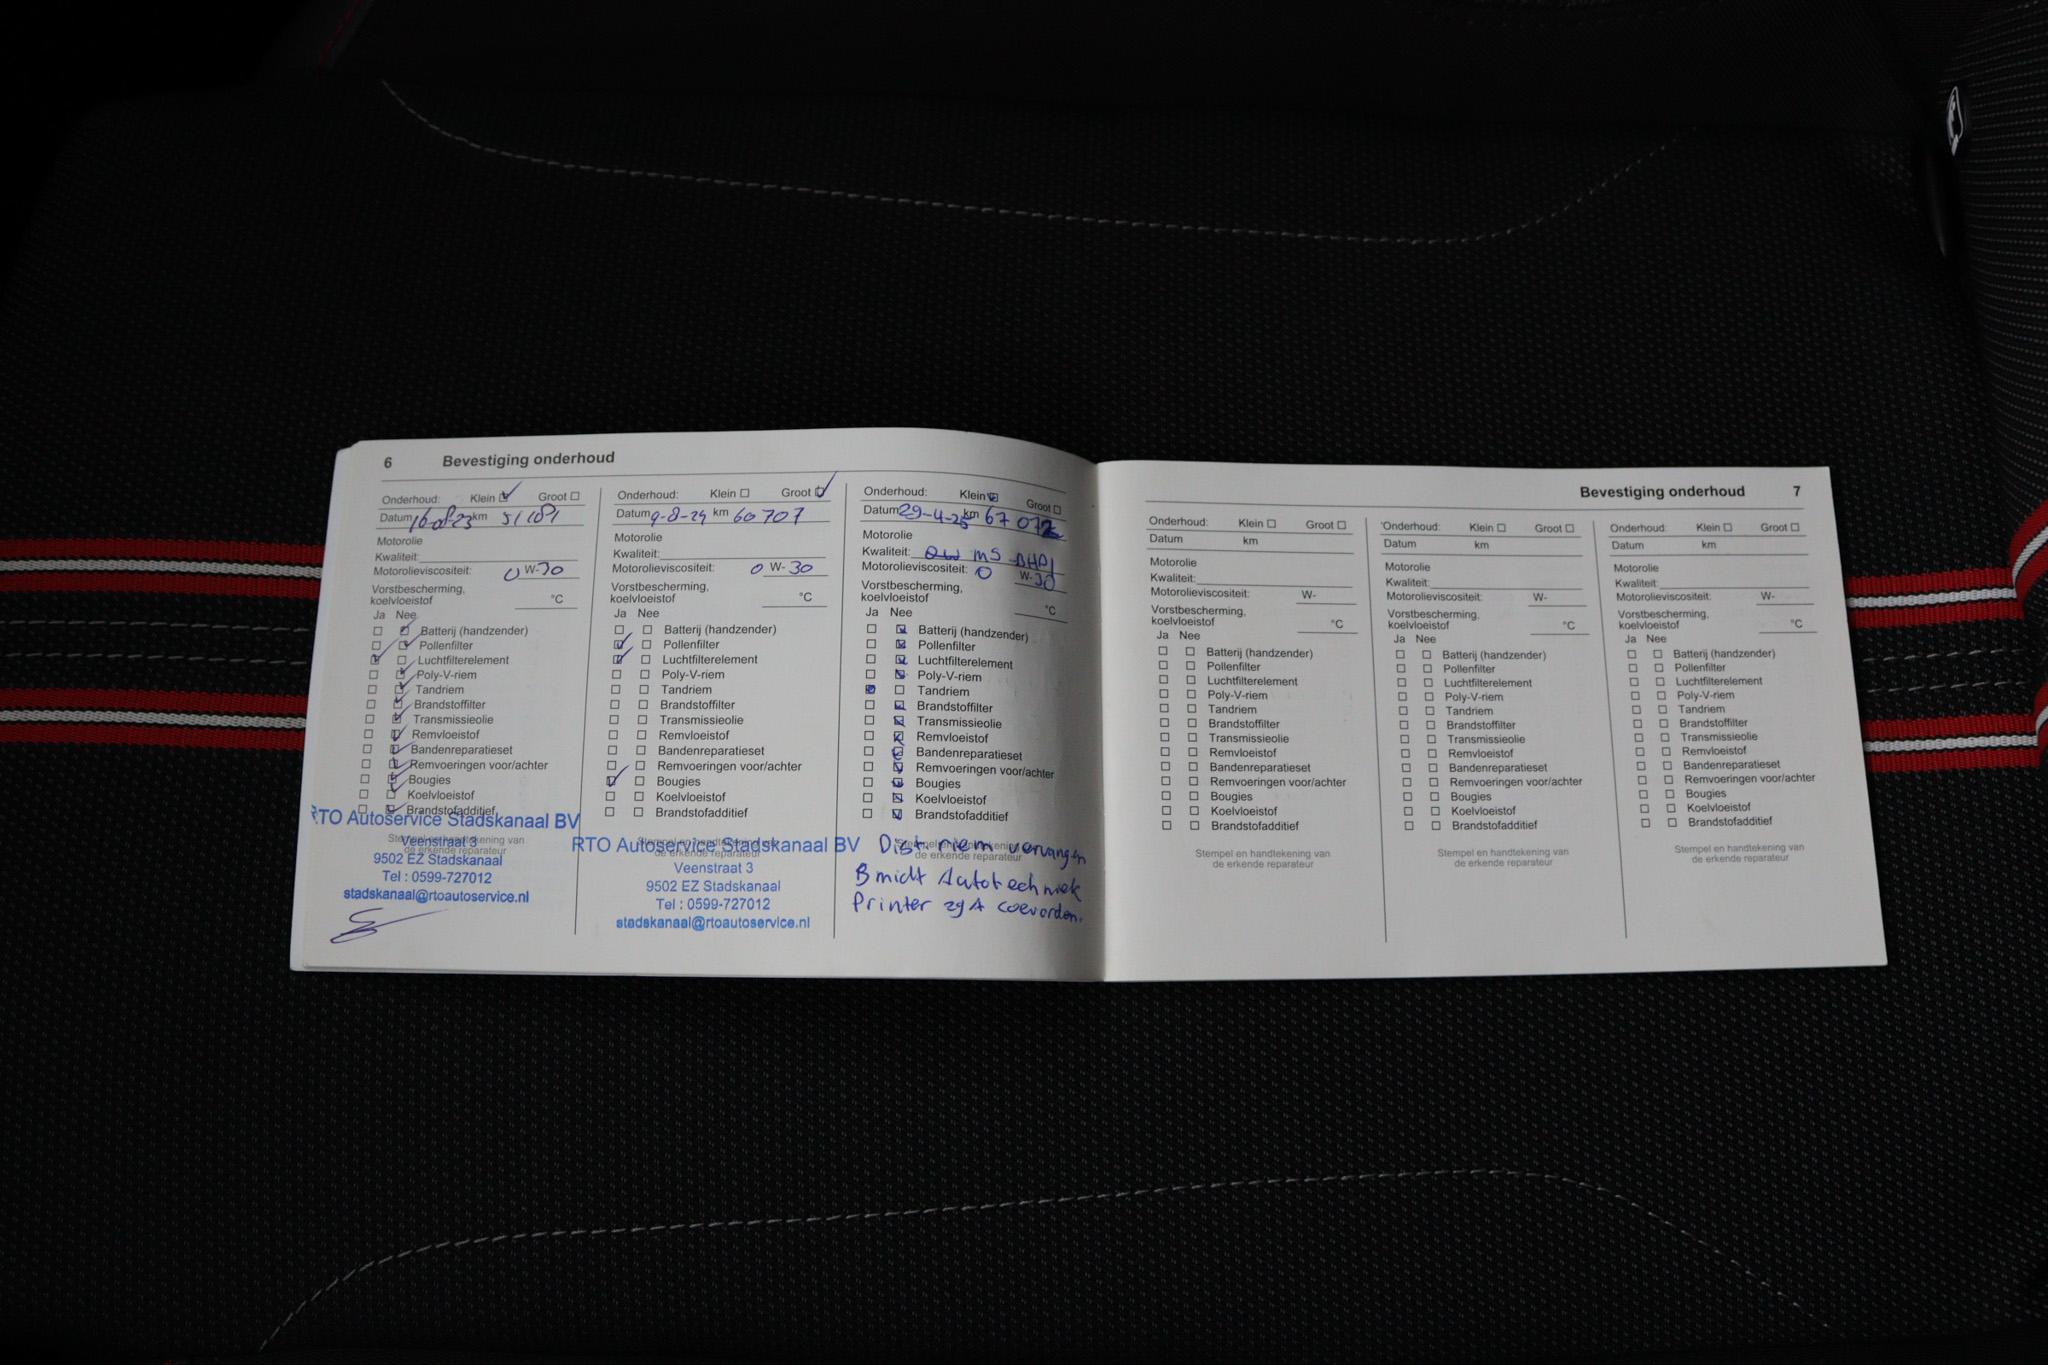 6 Bevestiging onderhoud
Onderhoud: Klein Groot
Datum 16-08-23 km 51181
Motorolie
Kwaliteit:
Motorolieviscositeit: 0 W-30
Vorstbescherming,
koelvloeistof °C
Ja Nee
Batterij (handzender)
Pollenfilter
Luchtfilterelement
Poly-V-riem
Tandriem
Brandstoffilter
Transmissieolie
Remvloeistof
Bandenreparatieset
Remvoeringen voor/achter
Bougies
Koelvloeistof
Brandstofadditief
Stempel en handtekening van
de erkende reparateur
RTO Autoservice Stadskanaal BV
Veenstraat 3
9502 EZ Stadskanaal
Tel : 0599-727012
stadskanaal@rtoautoservice.nl
Onderhoud: Klein Groot
Datum 9-8-24 km 60707
Motorolie
Kwaliteit:
Motorolieviscositeit: 0 W-30
Vorstbescherming,
koelvloeistof °C
Ja Nee
Batterij (handzender)
Pollenfilter
Luchtfilterelement
Poly-V-riem
Tandriem
Brandstoffilter
Transmissieolie
Remvloeistof
Bandenreparatieset
Remvoeringen voor/achter
Bougies
Koelvloeistof
Brandstofadditief
Stempel en handtekening van
de erkende reparateur
RTO Autoservice Stadskanaal BV
Veenstraat 3
9502 EZ Stadskanaal
Tel : 0599-727012
stadskanaal@rtoautoservice.nl
Onderhoud: Klein Groot
Datum 29-4-25 km 67 072
Motorolie
Kwaliteit: MS
Motorolieviscositeit: 0 W-30
Vorstbescherming,
koelvloeistof °C
Ja Nee
Batterij (handzender)
Pollenfilter
Luchtfilterelement
Poly-V-riem
Tandriem
Brandstoffilter
Transmissieolie
Remvloeistof
Bandenreparatieset
Remvoeringen voor/achter
Bougies
Koelvloeistof
Brandstofadditief
Stempel en handtekening van
de erkende reparateur
Dist. riem vervangen
Bmidt Autotechniek
Printer 29A Coevorden.
Bevestiging onderhoud 7
Onderhoud: Klein Groot
Datum km
Motorolie
Kwaliteit:
Motorolieviscositeit: W-
Vorstbescherming,
koelvloeistof °C
Ja Nee
Batterij (handzender)
Pollenfilter
Luchtfilterelement
Poly-V-riem
Tandriem
Brandstoffilter
Transmissieolie
Remvloeistof
Bandenreparatieset
Remvoeringen voor/achter
Bougies
Koelvloeistof
Brandstofadditief
Stempel en handtekening van
de erkende reparateur
Onderhoud: Klein Groot
Datum km
Motorolie
Kwaliteit:
Motorolieviscositeit: W-
Vorstbescherming,
koelvloeistof °C
Ja Nee
Batterij (handzender)
Pollenfilter
Luchtfilterelement
Poly-V-riem
Tandriem
Brandstoffilter
Transmissieolie
Remvloeistof
Bandenreparatieset
Remvoeringen voor/achter
Bougies
Koelvloeistof
Brandstofadditief
Stempel en handtekening van
de erkende reparateur
Onderhoud: Klein Groot
Datum km
Motorolie
Kwaliteit:
Motorolieviscositeit: W-
Vorstbescherming,
koelvloeistof °C
Ja Nee
Batterij (handzender)
Pollenfilter
Luchtfilterelement
Poly-V-riem
Tandriem
Brandstoffilter
Transmissieolie
Remvloeistof
Bandenreparatieset
Remvoeringen voor/achter
Bougies
Koelvloeistof
Brandstofadditief
Stempel en handtekening van
de erkende reparateur